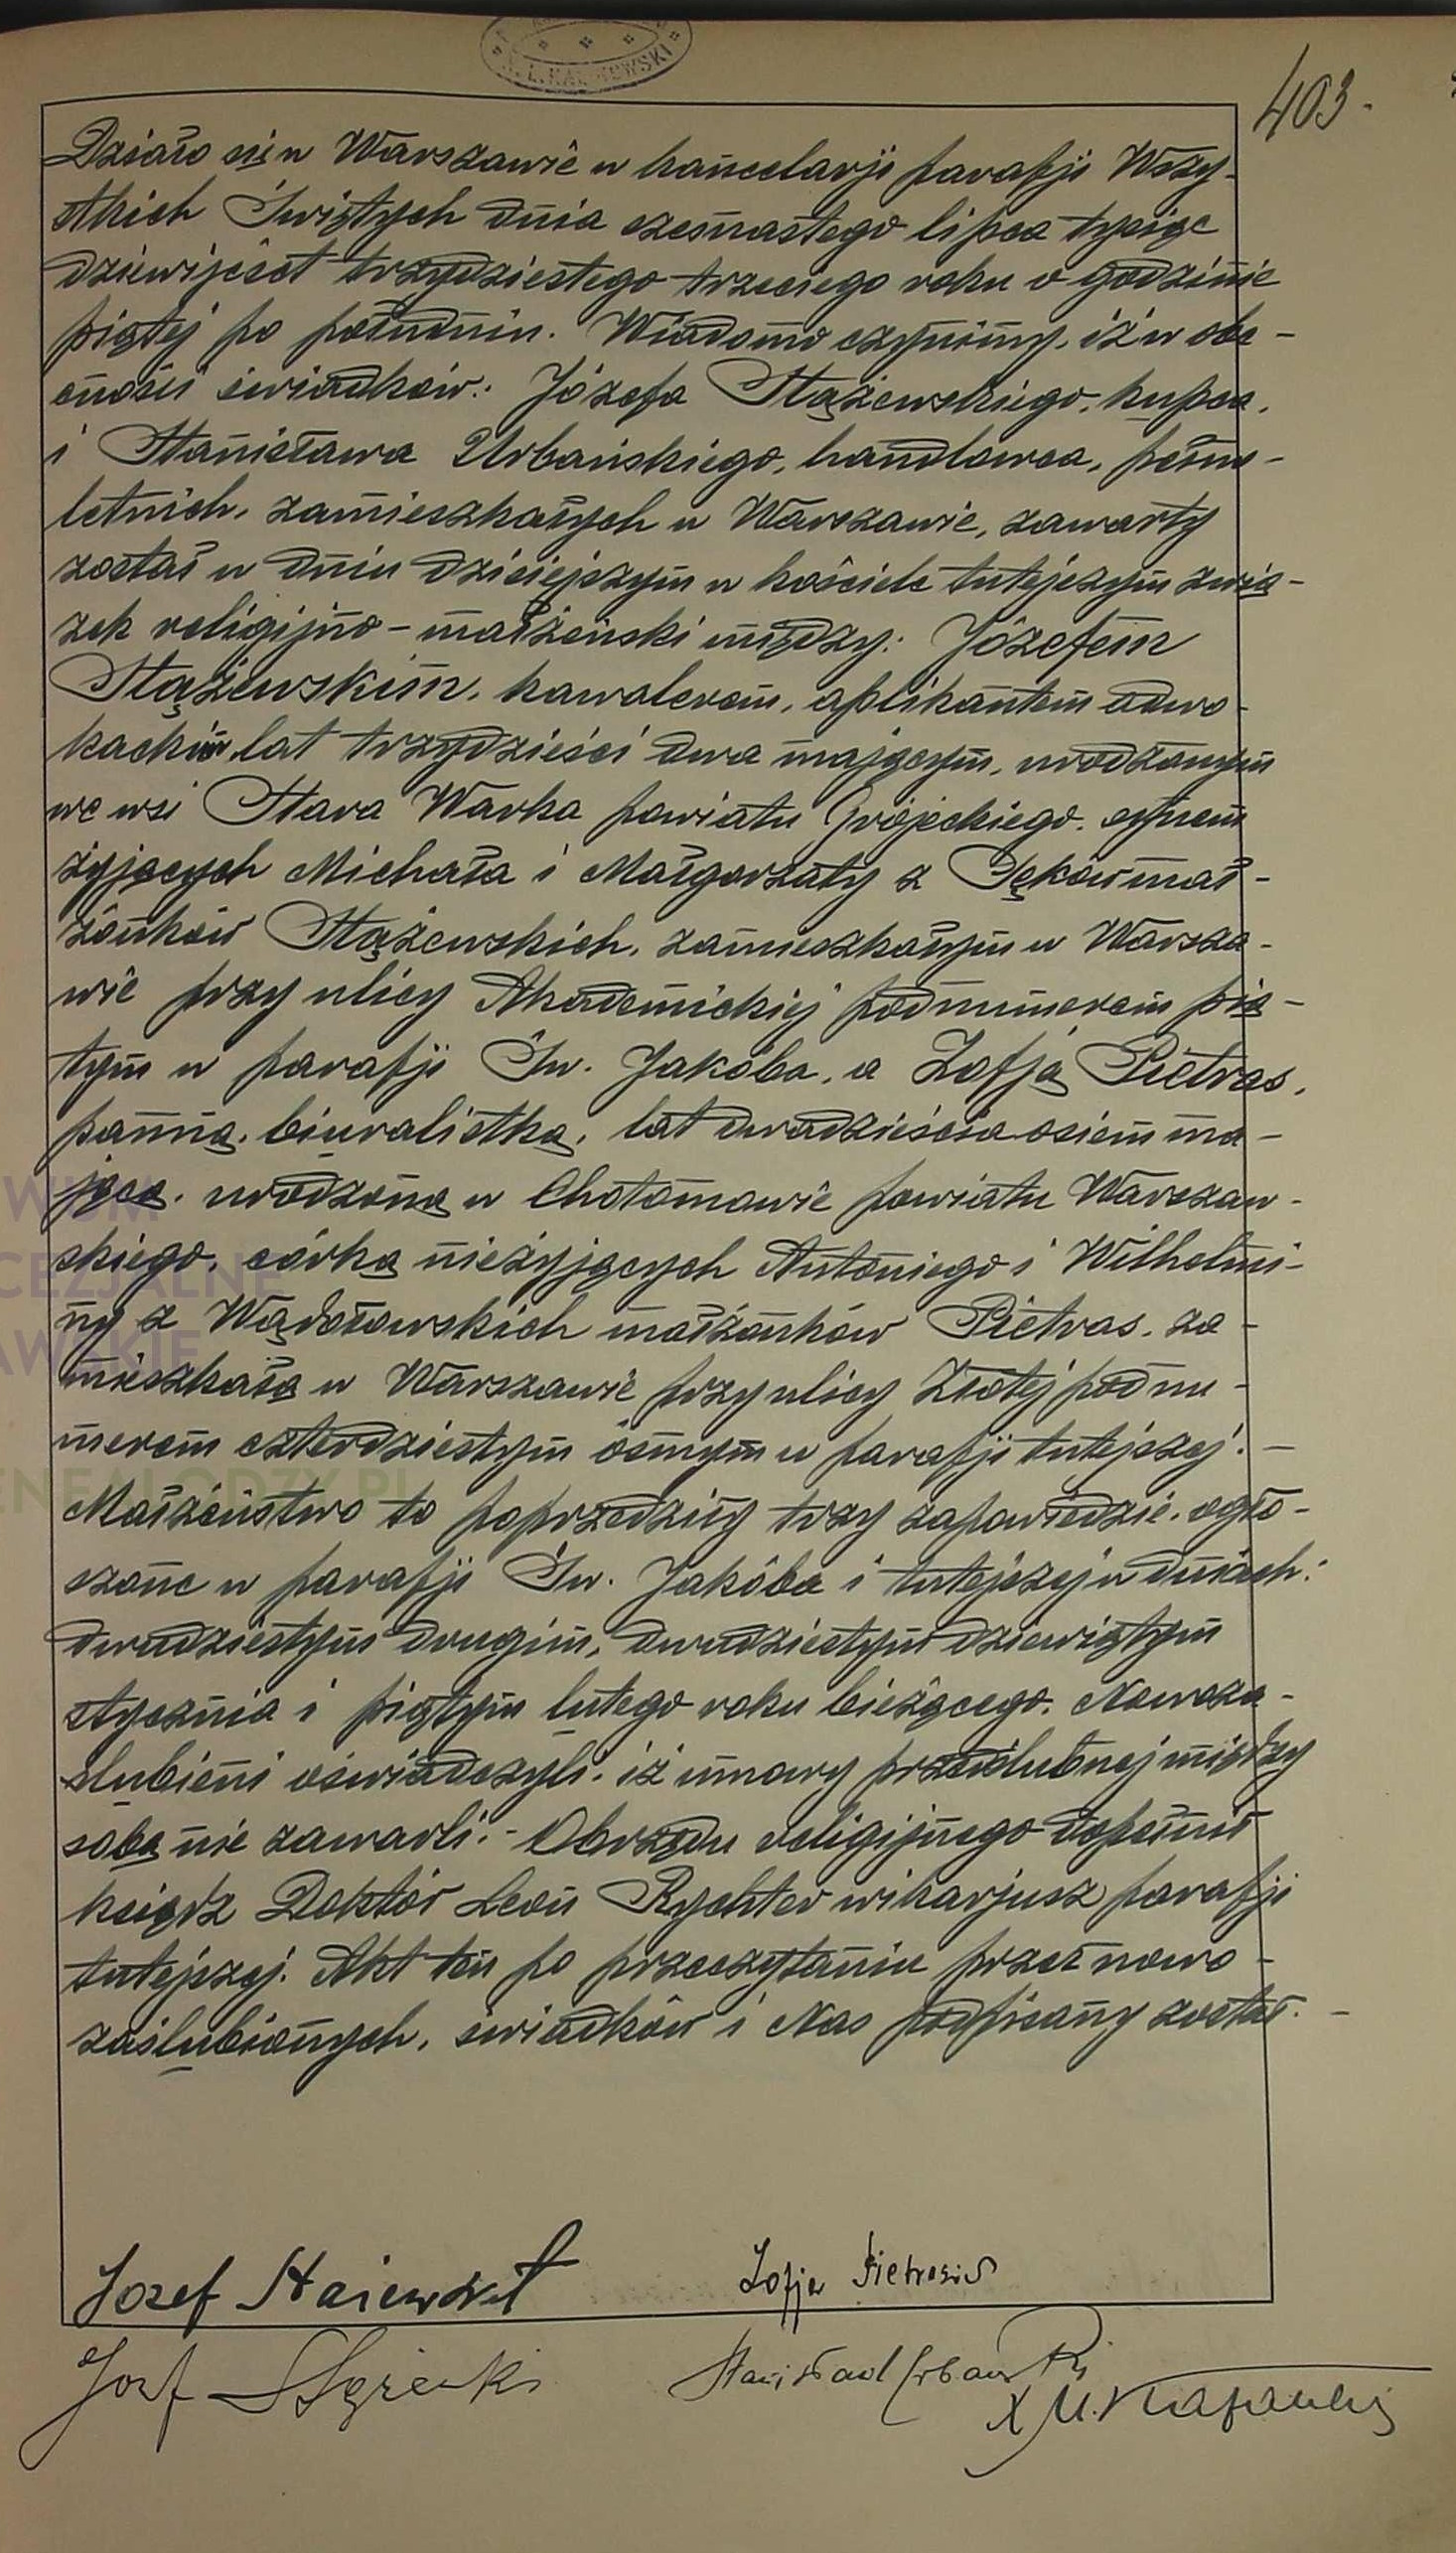 L. KALINOWSKI
403.
Działo się w Warszawie w kancelarji parafji Wszy-
stkich Świętych dnia szesnastego lipca tysiąc
dziewięćset trzydziestego trzeciego roku o godzinie
piątej po południu. Wiadomo czynimy, iż w obe-
cności świadków: Józefa Stążewskiego, kupca,
i Stanisława Urbańskiego, handlowca, pełno-
letnich, zamieszkałych w Warszawie, zawarty
został w dniu dzisiejszym w kościele tutejszym zwią-
zek religijno-małżeński między: Józefem
Stążewskim, kawalerem, aplikantem adwo-
kackim lat trzydzieści dwa mającym, urodzonym
we wsi Stara Warka powiatu Grójeckiego, synem
żyjących Michała i Małgorzaty z Sęków mał-
żonków Stążewskich, zamieszkałym w Warsza-
wie przy ulicy Akademickiej pod numerem pią-
tym w parafji Św. Jakóba, a Zofją Pietras,
panną, biuralistką, lat dwadzieścia osiem ma-
jącą, urodzoną w Chotomowie powiatu Warszaw-
skiego, córką nieżyjących Antoniego i Wilhelmi-
ny z Wądołowskich małżonków Pietras, za-
mieszkałą w Warszawie przy ulicy Złotej pod nu-
merem czterdziestym ósmym w parafji tutejszej. —
Małżeństwo to poprzedziły trzy zapowiedzie, ogło-
szone w parafji Św. Jakóba i tutejszej w dniach:
dwudziestym drugim, dwudziestym dziewiątym
stycznia i piątym lutego roku bieżącego. Nowoza-
ślubieni oświadczyli, iż umowy przedślubnej między
sobą nie zawarli. - Obrzędu religijnego dopełnił
ksiądz Doktór Leon Rychter wikarjusz parafji
tutejszej. Akt ten po przeczytaniu przez nowo-
zaślubionych, świadków i Nas podpisany został. —
Józef Stażewski Zofja Pietrasów
Józef Stanisław Urbański
X M.
WUM
CEZJALNE
AWSKIE
ENEALODZY.PL